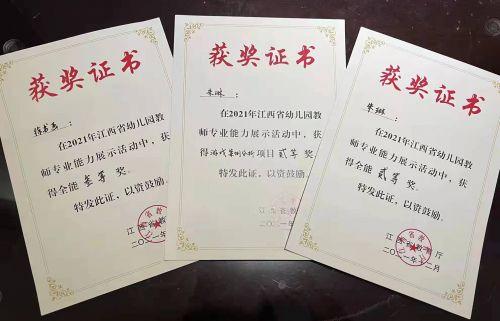 获奖证书
:
在2021年江西省幼儿园教
师专业能力展示活动中，获
得全能 叁等 奖。
特发此证，以资鼓励。
江西省教育厅
二〇二一年十二月
获奖证书
朱琳 :
在2021年江西省幼儿园教
师专业能力展示活动中，获
得游戏案例分析项目 贰等 奖。
特发此证，以资鼓励。
江西省教育厅
二〇二一年十二月
获奖证书
朱琳 :
在2021年江西省幼儿园教
师专业能力展示活动中，获
得全能 贰等 奖。
特发此证，以资鼓励。
江西省教育厅
二〇二一年十二月